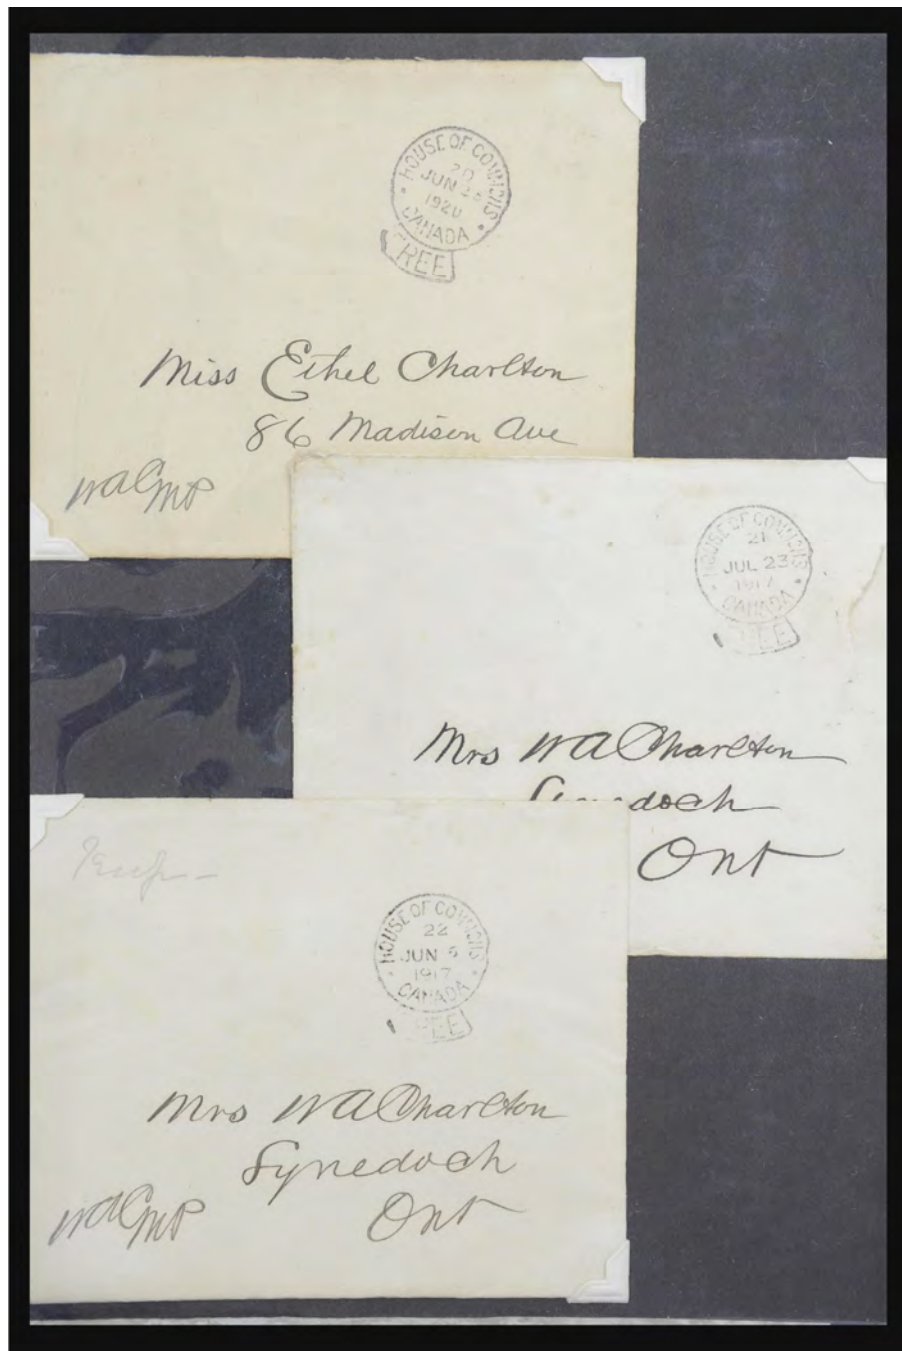 HOUSE OF COMMONS
20
JUN 25
1920
CANADA
FREE
Miss Ethel Charlton
86 Madison Ave
WAC MP
HOUSE OF COMMONS
21
JUL 23
1917
CANADA
FREE
Mrs WA Charlton
Lynedoch
Ont
HOUSE OF COMMONS
22
JUN 5
1917
CANADA
FREE
Mrs WA Charlton
Lynedoch
Ont
WAC MP